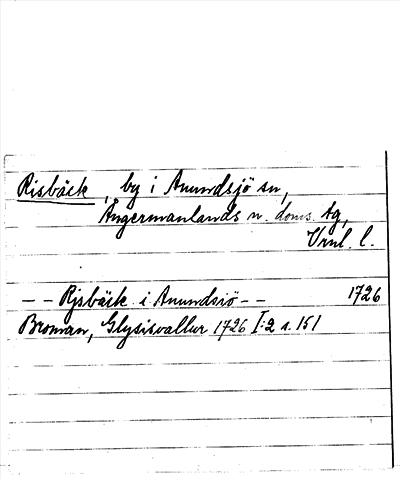 Risbäck, by i Anundsjö sn,
Ångermanlands n. doms. tg,
Vrnl. l.
-- Rjsbäck i Anundsiö -- 1726
Broman, Glysisvallur 1726 I:2 s. 151